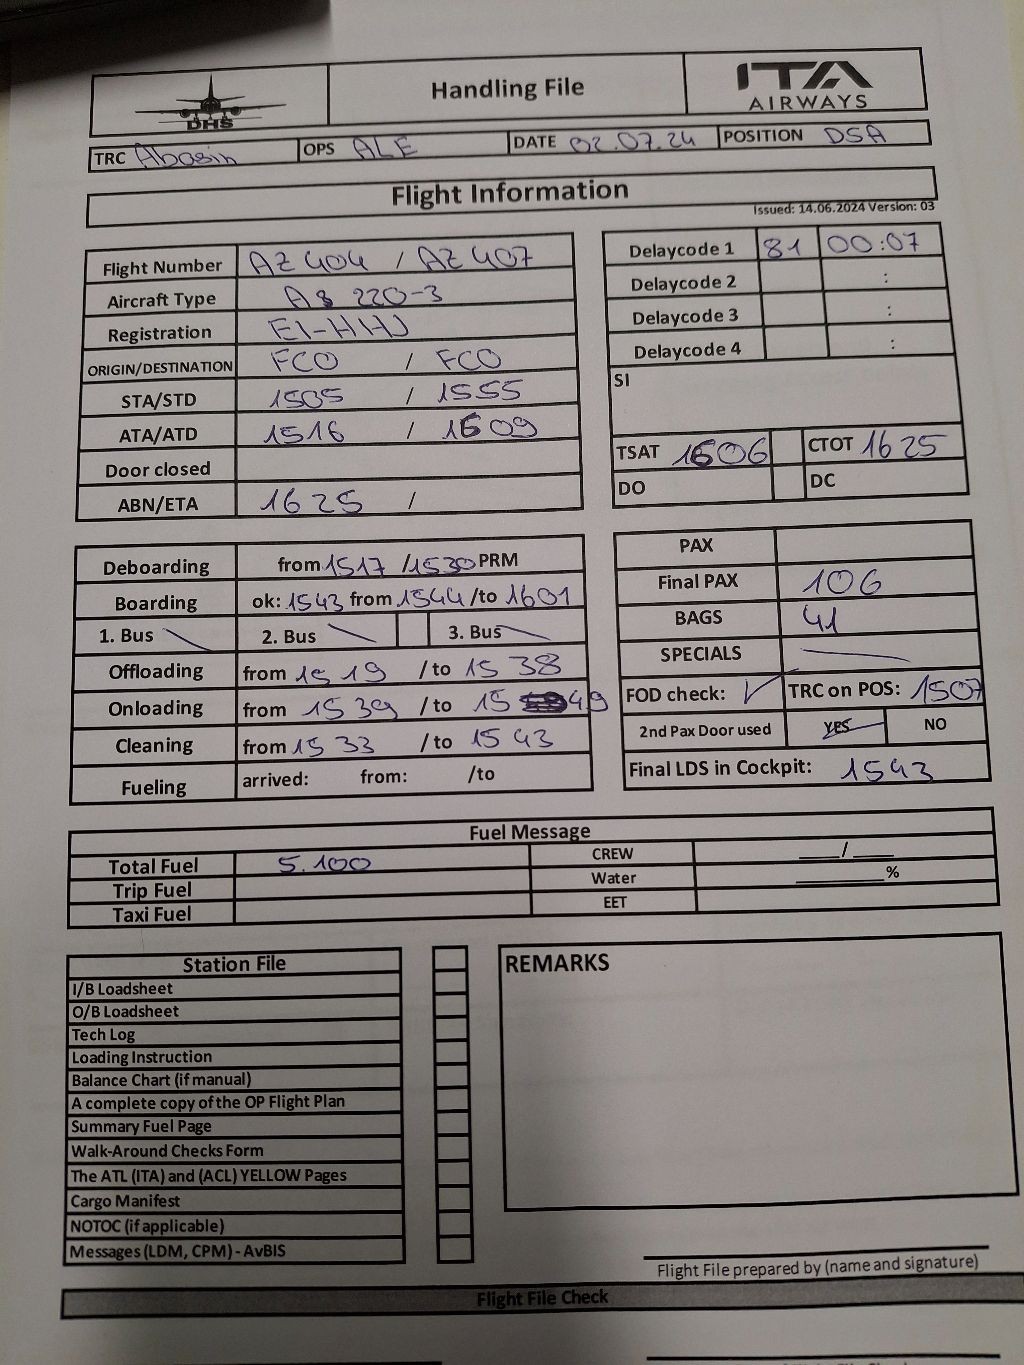 DHS
Handling File
ITA
AIRWAYS
TRC Abasin OPS ALE DATE 02.07.24 POSITION DSA
Flight Information
Issued: 14.06.2024 Version: 03
Flight Number AZ 404 / AZ 407
Aircraft Type A 220-3
Registration EI-HHJ
ORIGIN/DESTINATION FCO / FCO
STA/STD 1505 / 1555
ATA/ATD 1516 / 1609
Door closed
ABN/ETA 1625 /
Delaycode 1 81 00:07
Delaycode 2 :
Delaycode 3 :
Delaycode 4 :
SI
TSAT 1606 CTOT 1625
DO DC
Deboarding from 1517 /1530 PRM
Boarding ok: 1543 from 1544 /to 1601
1. Bus 2. Bus 3. Bus
Offloading from 1519 /to 1538
Onloading from 1539 /to 1549
Cleaning from 1533 /to 1543
Fueling arrived: from: /to
PAX
Final PAX 106
BAGS 41
SPECIALS
FOD check: ✓ TRC on POS: 1507
2nd Pax Door used YES NO
Final LDS in Cockpit: 1543
Fuel Message
Total Fuel 5.100 CREW ____/____
Trip Fuel Water ________%
Taxi Fuel EET
Station File
I/B Loadsheet
O/B Loadsheet
Tech Log
Loading Instruction
Balance Chart (if manual)
A complete copy of the OP Flight Plan
Summary Fuel Page
Walk-Around Checks Form
The ATL (ITA) and (ACL) YELLOW Pages
Cargo Manifest
NOTOC (if applicable)
Messages (LDM, CPM) - AvBIS
REMARKS
Flight File prepared by (name and signature)
Flight File Check